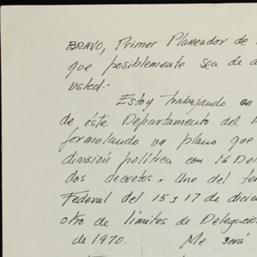 BRAVO, Primer Planeador de
que posiblemente sea de
usted.-
Estoy trabajando en
de éste Departamento del
formulando un plano que
división política con 16 Del
dos decretos. Uno del
Federal del 15 y 17 de dicie
otro de límites de Delegac
de 1970. Me será